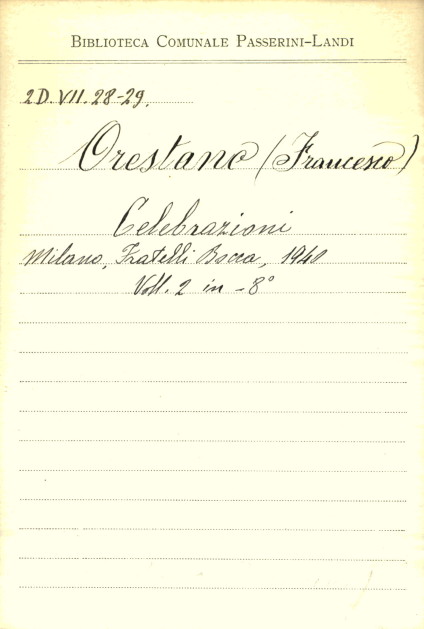 BIBLIOTECA COMUNALE PASSERINI-LANDI
2D.VII.28-29.
Orestano (Francesco)
Celebrazioni
Milano, Fratelli Bocca, 1940
Voll. 2 in -8°